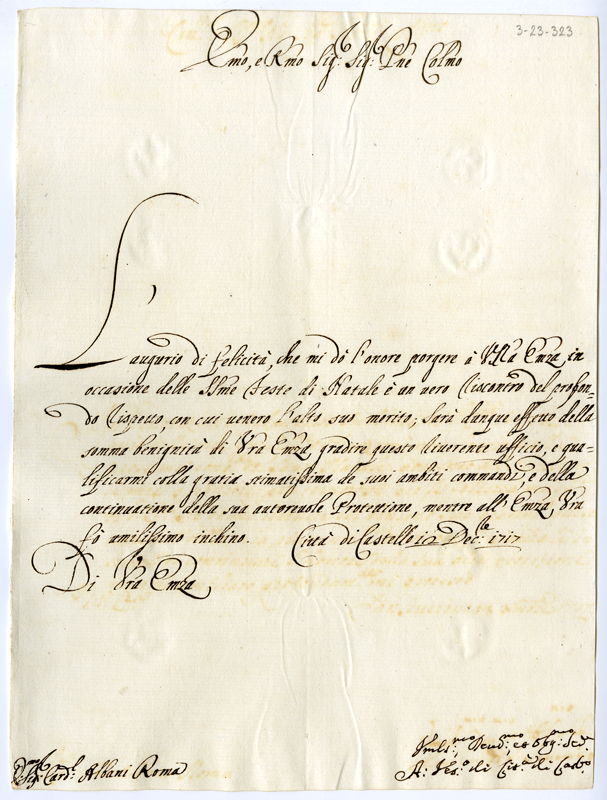 3-23-323
Emo, e Rmo Sig.r Sig.r Pne Colmo
L'augurio di felicità, che mi dò l'onore porgere à V'ra Emza, in
occasione delle SSme Feste di Natale è un vero riscontro del profon=
do rispetto, con cui venero l'alto suo merito; Sarà dunque effetto della
somma benignità di Vra Emza, gradire questo riverente ufficio, e qua=
lificarmi colla gratia stimatissima de suoi ambiti commandi, e della
continuatione della sua autorevole Protettione, mentre all'Emza Vra
fò umilissimo inchino. Città di Castello 12 Dec.bre 1717
Di Vra Emza
Sig.r Card.l Albani Roma
Umil.mo Dev.mo, et Obg.mo Ser.
A: Ves.o di Citt.à di Cast.o